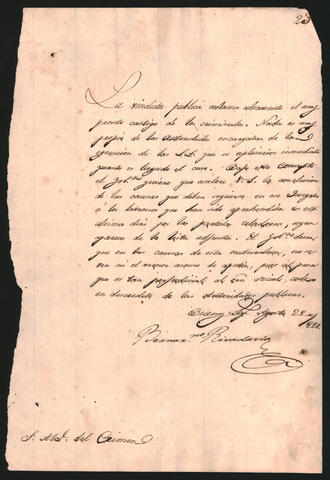 23
La vindicta publica reclama altamente el mas
pronto castigo de los criminales. Nada es mas
propio de las autoridades encargadas de la
egecucion de las L.L. que su aplicacion inmediata
quando es llegado el caso. Bajo este concepto
el Gob.no quiere que acelere V.S. la conclusion
de las causas que deben seguirse en su Juzgado
a los ladrones que han sido aprehendidos en estos
ultimos dias por las partidas
aparece de la lista adjunta. El Gob.no desea
que en las causas de esta naturaleza, no se
ni el menor
que es tan perjudicial al social, cede
en descredito de las autoridades publicas.
Buenos Ay.s Agosto 28 de
Bernar.no Rivadavia
S. del Crimen